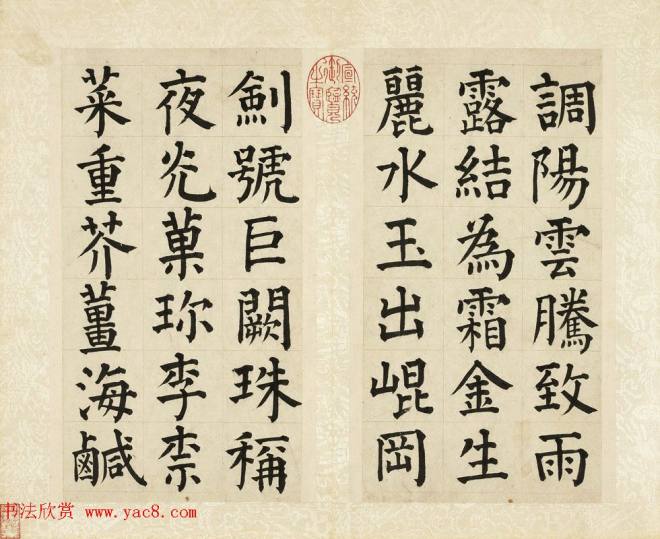 調陽雲騰致雨
露結為霜金生
麗水玉出崐岡
宣統御覽之寶
劍號巨闕珠稱
夜光菓珎李柰
菜重芥薑海鹹
书法欣赏 www.yac8.com